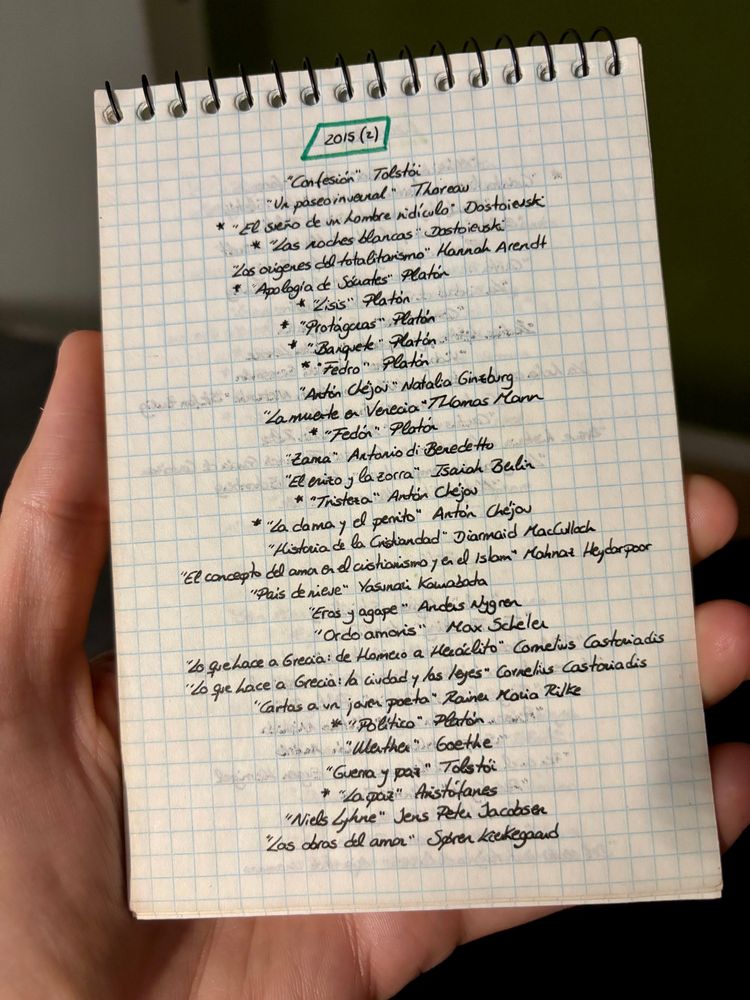 2015 (2)
"Confesión" Tolstói
"Un paseo invernal" Thoreau
* "El sueño de un hombre ridículo" Dostoievski
* "Las noches blancas" Dostoievski
"Los orígenes del totalitarismo" Hannah Arendt
* "Apología de Sócrates" Platón
* "Lisis" Platón
* "Protágoras" Platón
* "Banquete" Platón
* "Fedro" Platón
"Antón Chéjov" Natalia Ginzburg
"La muerte en Venecia" Thomas Mann
* "Fedón" Platón
"Zama" Antonio di Benedetto
"El erizo y la zorra" Isaiah Berlin
* "Tristeza" Antón Chéjov
* "La dama y el perrito" Antón Chéjov
"Historia de la Cristiandad" Diarmaid MacCulloch
"El concepto del amor en el cristianismo y en el Islam" Mahnaz Heydarpoor
"País de nieve" Yasunari Kawabata
"Eros y agape" Anders Nygren
"Ordo amoris" Max Scheler
"Lo que hace a Grecia: de Homero a Heráclito" Cornelius Castoriadis
"Lo que hace a Grecia: la ciudad y las leyes" Cornelius Castoriadis
"Cartas a un joven poeta" Rainer Maria Rilke
* "Político" Platón
"Werther" Goethe
"Guerra y paz" Tolstói
* "La paz" Aristófanes
"Niels Lyhne" Jens Peter Jacobsen
"Las obras del amor" Søren Kierkegaard